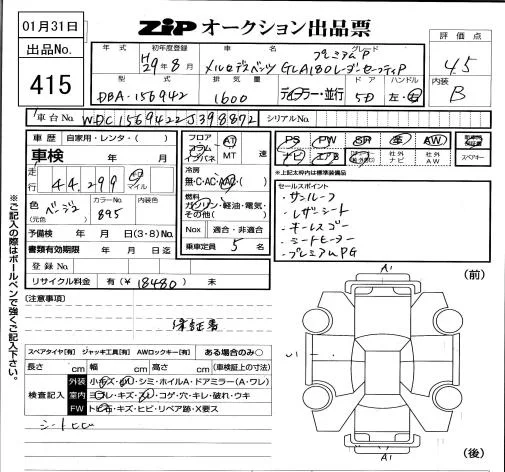 01月31日
出品No.
415
ZIP オークション出品票
評価点
4.5
内装
B
年式
初年度登録
車名
グレード
H29年8月
メルセデスベンツ
プレミアムP
GLA180レーダーセーフティP
型式
排気量
ドア
ハンドル
DBA-156942
1600
ディーラー・並行
5D
左・右
車台No.
WDC1569422J398872
シリアルNo.
車歴
自家用・レンタ・( )
車検
年 月
走行
44,299
km
マイル
色
(元色)
ベージュ
カラーNo.
895
内装色
予備検
年 月 日(3・8)No.
書類有効期限
年 月 日迄
登録No.
リサイクル料金
有(¥18480)
無
フロア
コラム
インパネ
AT
MT
速
冷房
無・C・AC・AAC・( )
燃料
ガソリン・軽油・電気・
その他( )
Nox
適合・非適合
乗車定員
5
名
PS
PW
SR
革
AW
ナビ
エアB
社外
ナビ
社外
AW
スペアキー
*上記太枠内は標準装備品
セールスポイント
・サンルーフ
・レザーシート
・キーレスゴー
・シートヒーター
・プレミアムPG
(注意事項)
保証書
スペアタイヤ[有]
ジャッキ工具[有]
AWロックキー[有]
ある場合のみ○
長さ
cm
幅
cm
高さ
cm
(車検証上の寸法)
検査記入
外装
小キズ・凹・シミ・ホイルA・ドアミラー(A・ワレ)
室内
ヨゴレ・キズ・スレ・コゲ・穴・キレ・破れ・ウキ
FW
トビ石・キズ・ヒビ・リペア跡・X要ス
シートヒビ
A1
(前)
U1
A1
(後)
※ご記入の際はボールペンで強くご記入下さい。